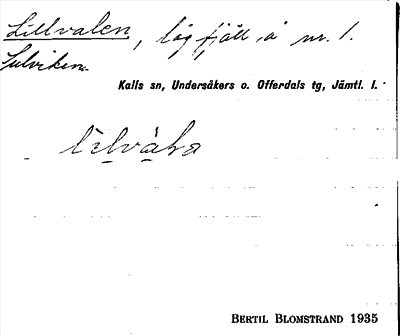 Lillvalen, låg fjäll, å nr. 1.
Sulviken.
Kalls sn, Undersåkers o. Offerdals tg, Jämtl. l.
BERTIL BLOMSTRAND 1935